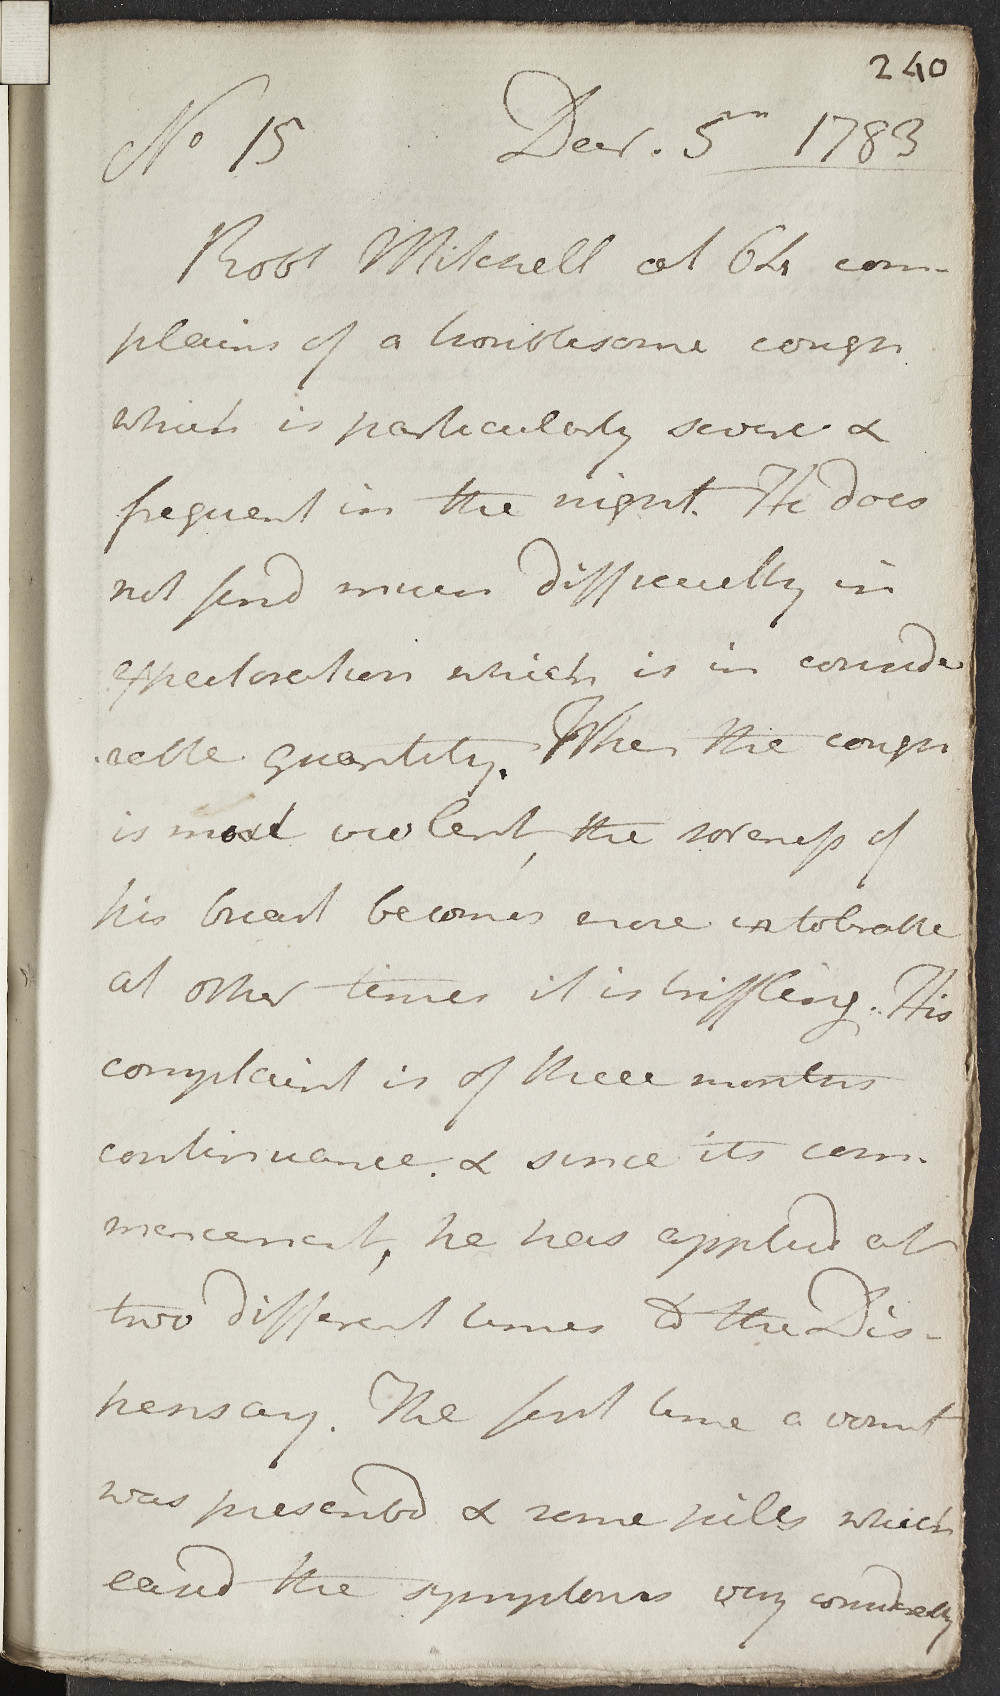 240
No 15 Decr. 5th 1783
Robt Mitchell æt 64 com-
plains of a troublesome cough
which is particularly severe &
frequent in the night. He does
not find much difficulty in
expectoration which is in conside
rable quantity. When the cough
is most violent, the soreness of
his breast becomes more intolerable
at other times it is triffling. His
complaint is of three months
continuance. & since its com-
mencement, he has applied at
two different times to the Dis-
pensary. The first time a vomit
was presented & some pills which
eased the symptoms very considerably